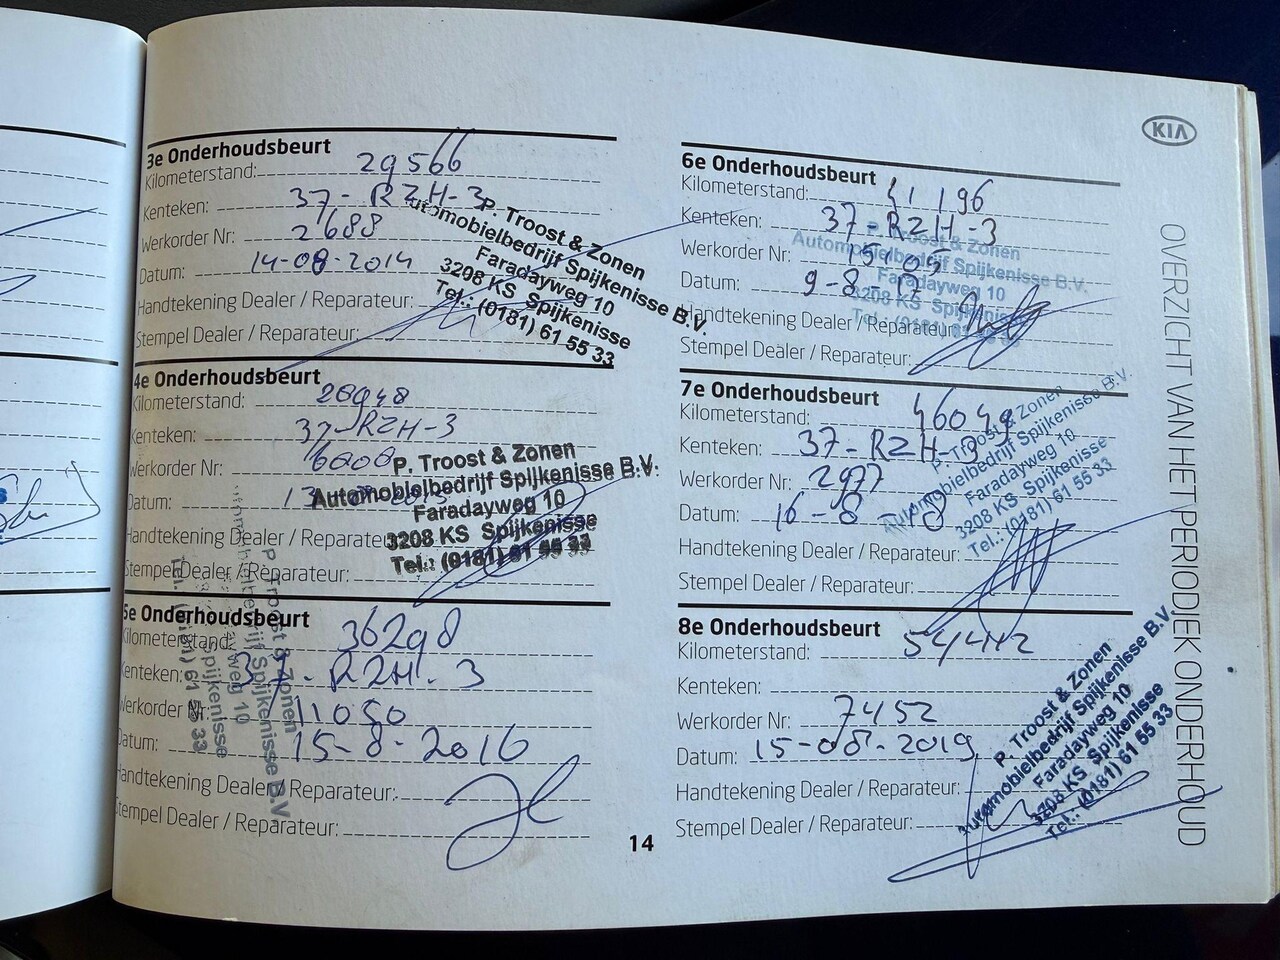 KIA
OVERZICHT VAN HET PERIODIEK ONDERHOUD
3e Onderhoudsbeurt
Kilometerstand: 29566
Kenteken: 37-RZH-3
Werkorder Nr: 2688
Datum: 14-08-2014
Handtekening Dealer / Reparateur:
Stempel Dealer / Reparateur:
P. Troost & Zonen
Automobielbedrijf Spijkenisse B.V.
Faradayweg 10
3208 KS Spijkenisse
Tel.: (0181) 61 55 33
4e Onderhoudsbeurt
Kilometerstand:
Kenteken: 37-RZH-3
Werkorder Nr:
Datum: 13
Handtekening Dealer / Reparateur:
Stempel Dealer / Reparateur:
P. Troost & Zonen
Automobielbedrijf Spijkenisse B.V.
Faradayweg 10
3208 KS Spijkenisse
Tel.: (0181) 61 55 33
5e Onderhoudsbeurt
Kilometerstand: 36298
Kenteken: 37-RZH-3
Werkorder Nr: 11050
Datum: 15-8-2016
Handtekening Dealer / Reparateur:
Stempel Dealer / Reparateur:
P. Troost & Zonen
Automobielbedrijf Spijkenisse B.V
Faradayweg 10
Spijkenisse
Tel.: (0181) 61 55 33
6e Onderhoudsbeurt
Kilometerstand: 41196
Kenteken: 37-RZH-3
Werkorder Nr:
Datum: 9-8-
Handtekening Dealer / Reparateur:
Stempel Dealer / Reparateur:
P. Troost & Zonen
Automobielbedrijf Spijkenisse B.V.
Faradayweg 10
3208 KS Spijkenisse
Tel.: (0181) 61
7e Onderhoudsbeurt
Kilometerstand: 46049
Kenteken: 37-RZH-3
Werkorder Nr: 2977
Datum: 16-8-18
Handtekening Dealer / Reparateur:
Stempel Dealer / Reparateur:
P. Troost & Zonen
Automobielbedrijf Spijkenisse B.V.
Faradayweg 10
3208 KS Spijkenisse
Tel.: (0181) 61 55 33
8e Onderhoudsbeurt
Kilometerstand: 54412
Kenteken:
Werkorder Nr: 7452
Datum: 15-08-2019
Handtekening Dealer / Reparateur:
Stempel Dealer / Reparateur:
P. Troost & Zonen
Automobielbedrijf Spijkenisse B.V.
Faradayweg 10
3208 KS Spijkenisse
Tel.: (0181) 61 55 33
14